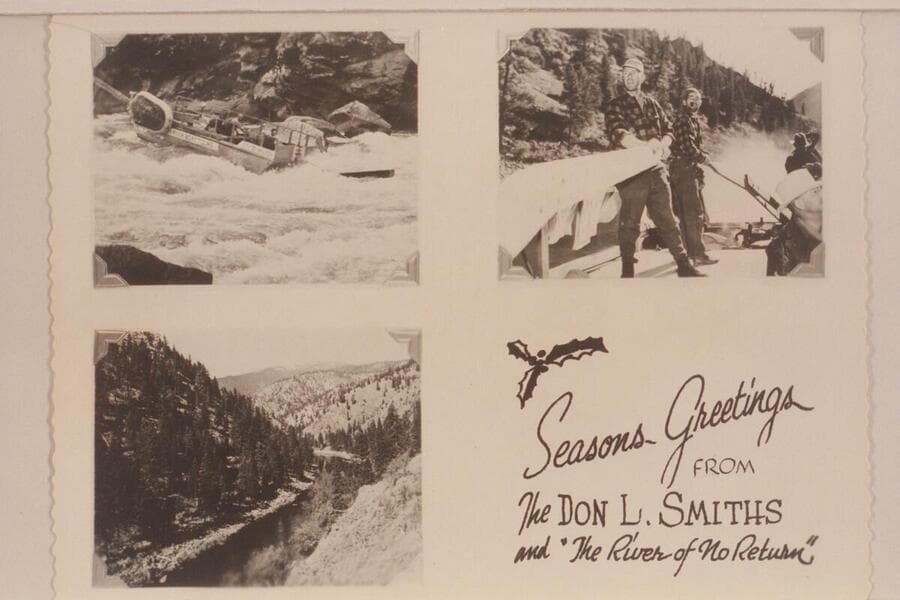 Seasons Greetings
FROM
The DON L. SMITHS
and "The River of No Return"